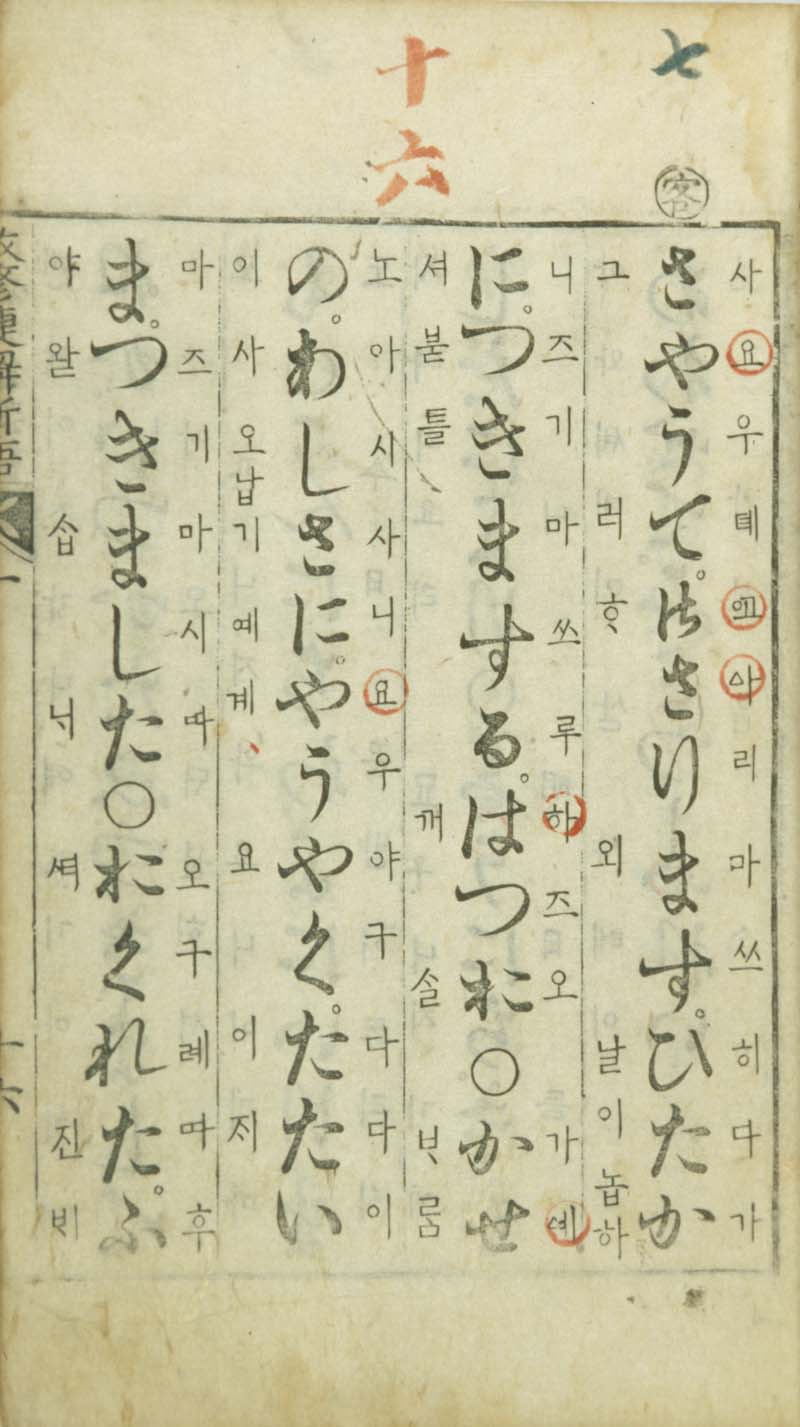 七
客
十六
사요우뎨고ᅀᅡ리마쓰히다가
さやうて。御さります。ひたか
그러ᄒᆞ외날이놉하
니즈기마쓰루하즈오가ᅀᅨ
に。つきまする。はつお○かせ
셔붇틀깨솔ᄇᆞ롬
노아시사니요우야구다다이
の。わしさに。やうやく。たたい
이사오납기예계요이제
마즈기마시따오구레따후
ま。つきました○おくれた。ふ
야왇숩진ᄇᆡ
改修捷解新語
一
十六